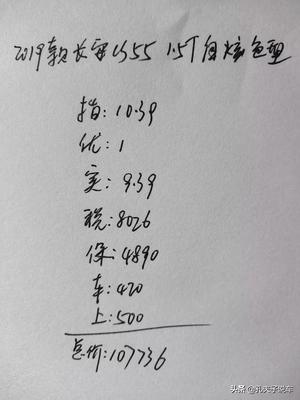 2019款长安CS55 1.5T自炫色型
指:10.39
优:1
实:9.39
税:8026
保:4890
车:420
上:500
总价:107736
头条@孔夫子说车